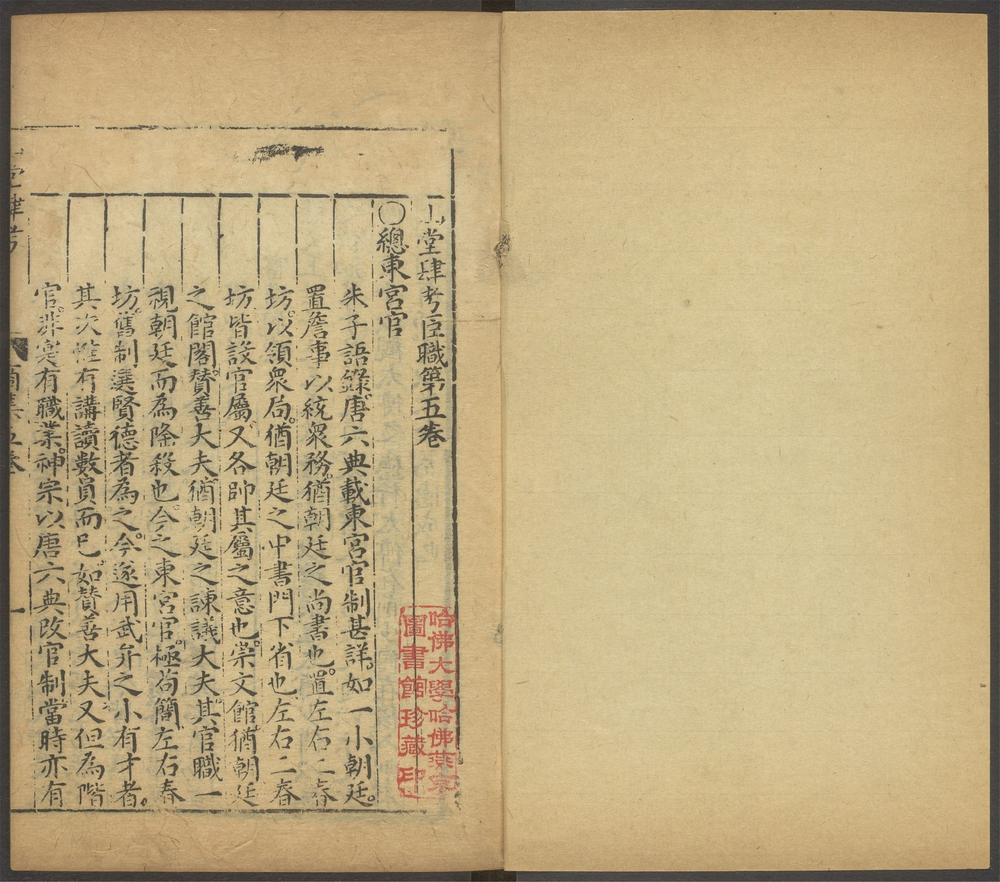 山堂肆考臣職第五卷
〇總東宮官
朱子語錄唐六典載東宮官制甚詳。如一小朝廷。
置詹事以統衆務。猶朝廷之尚書也。置左右二春
坊。以領衆局。猶朝廷之中書門下省也。左右二春
坊皆設官屬又各帥其屬之意也。崇文館猶朝廷
之館閣。贊善大夫猶朝廷之諫議大夫。其官職一
視朝廷而為隆殺也。今之東宮官。極茍簡左右春
坊。舊制選賢德者為之。今遂用武弁之小有才者。
其次惟有講讀數員而已。如贊善大夫又但為階
官。非實有職業。神宗以唐六典改官制。當時亦有
堂肆考
五卷
一
哈佛大學哈佛燕京
圖書館珍藏印